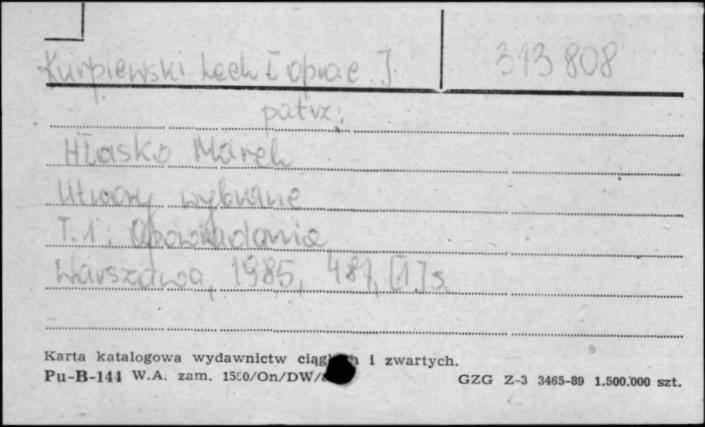 Kurpiewski Lech [oprac.] 313 808
patrz:
Hłasko Marek
Utwory wybrane
T.1: Opowiadania
Warszawa, 1985, 481, [1] s.
Karta katalogowa wydawnictw ciągłych i zwartych.
Pu-B-144 W.A. zam. GZG Z-3 3465-89 1.500.000 szt.